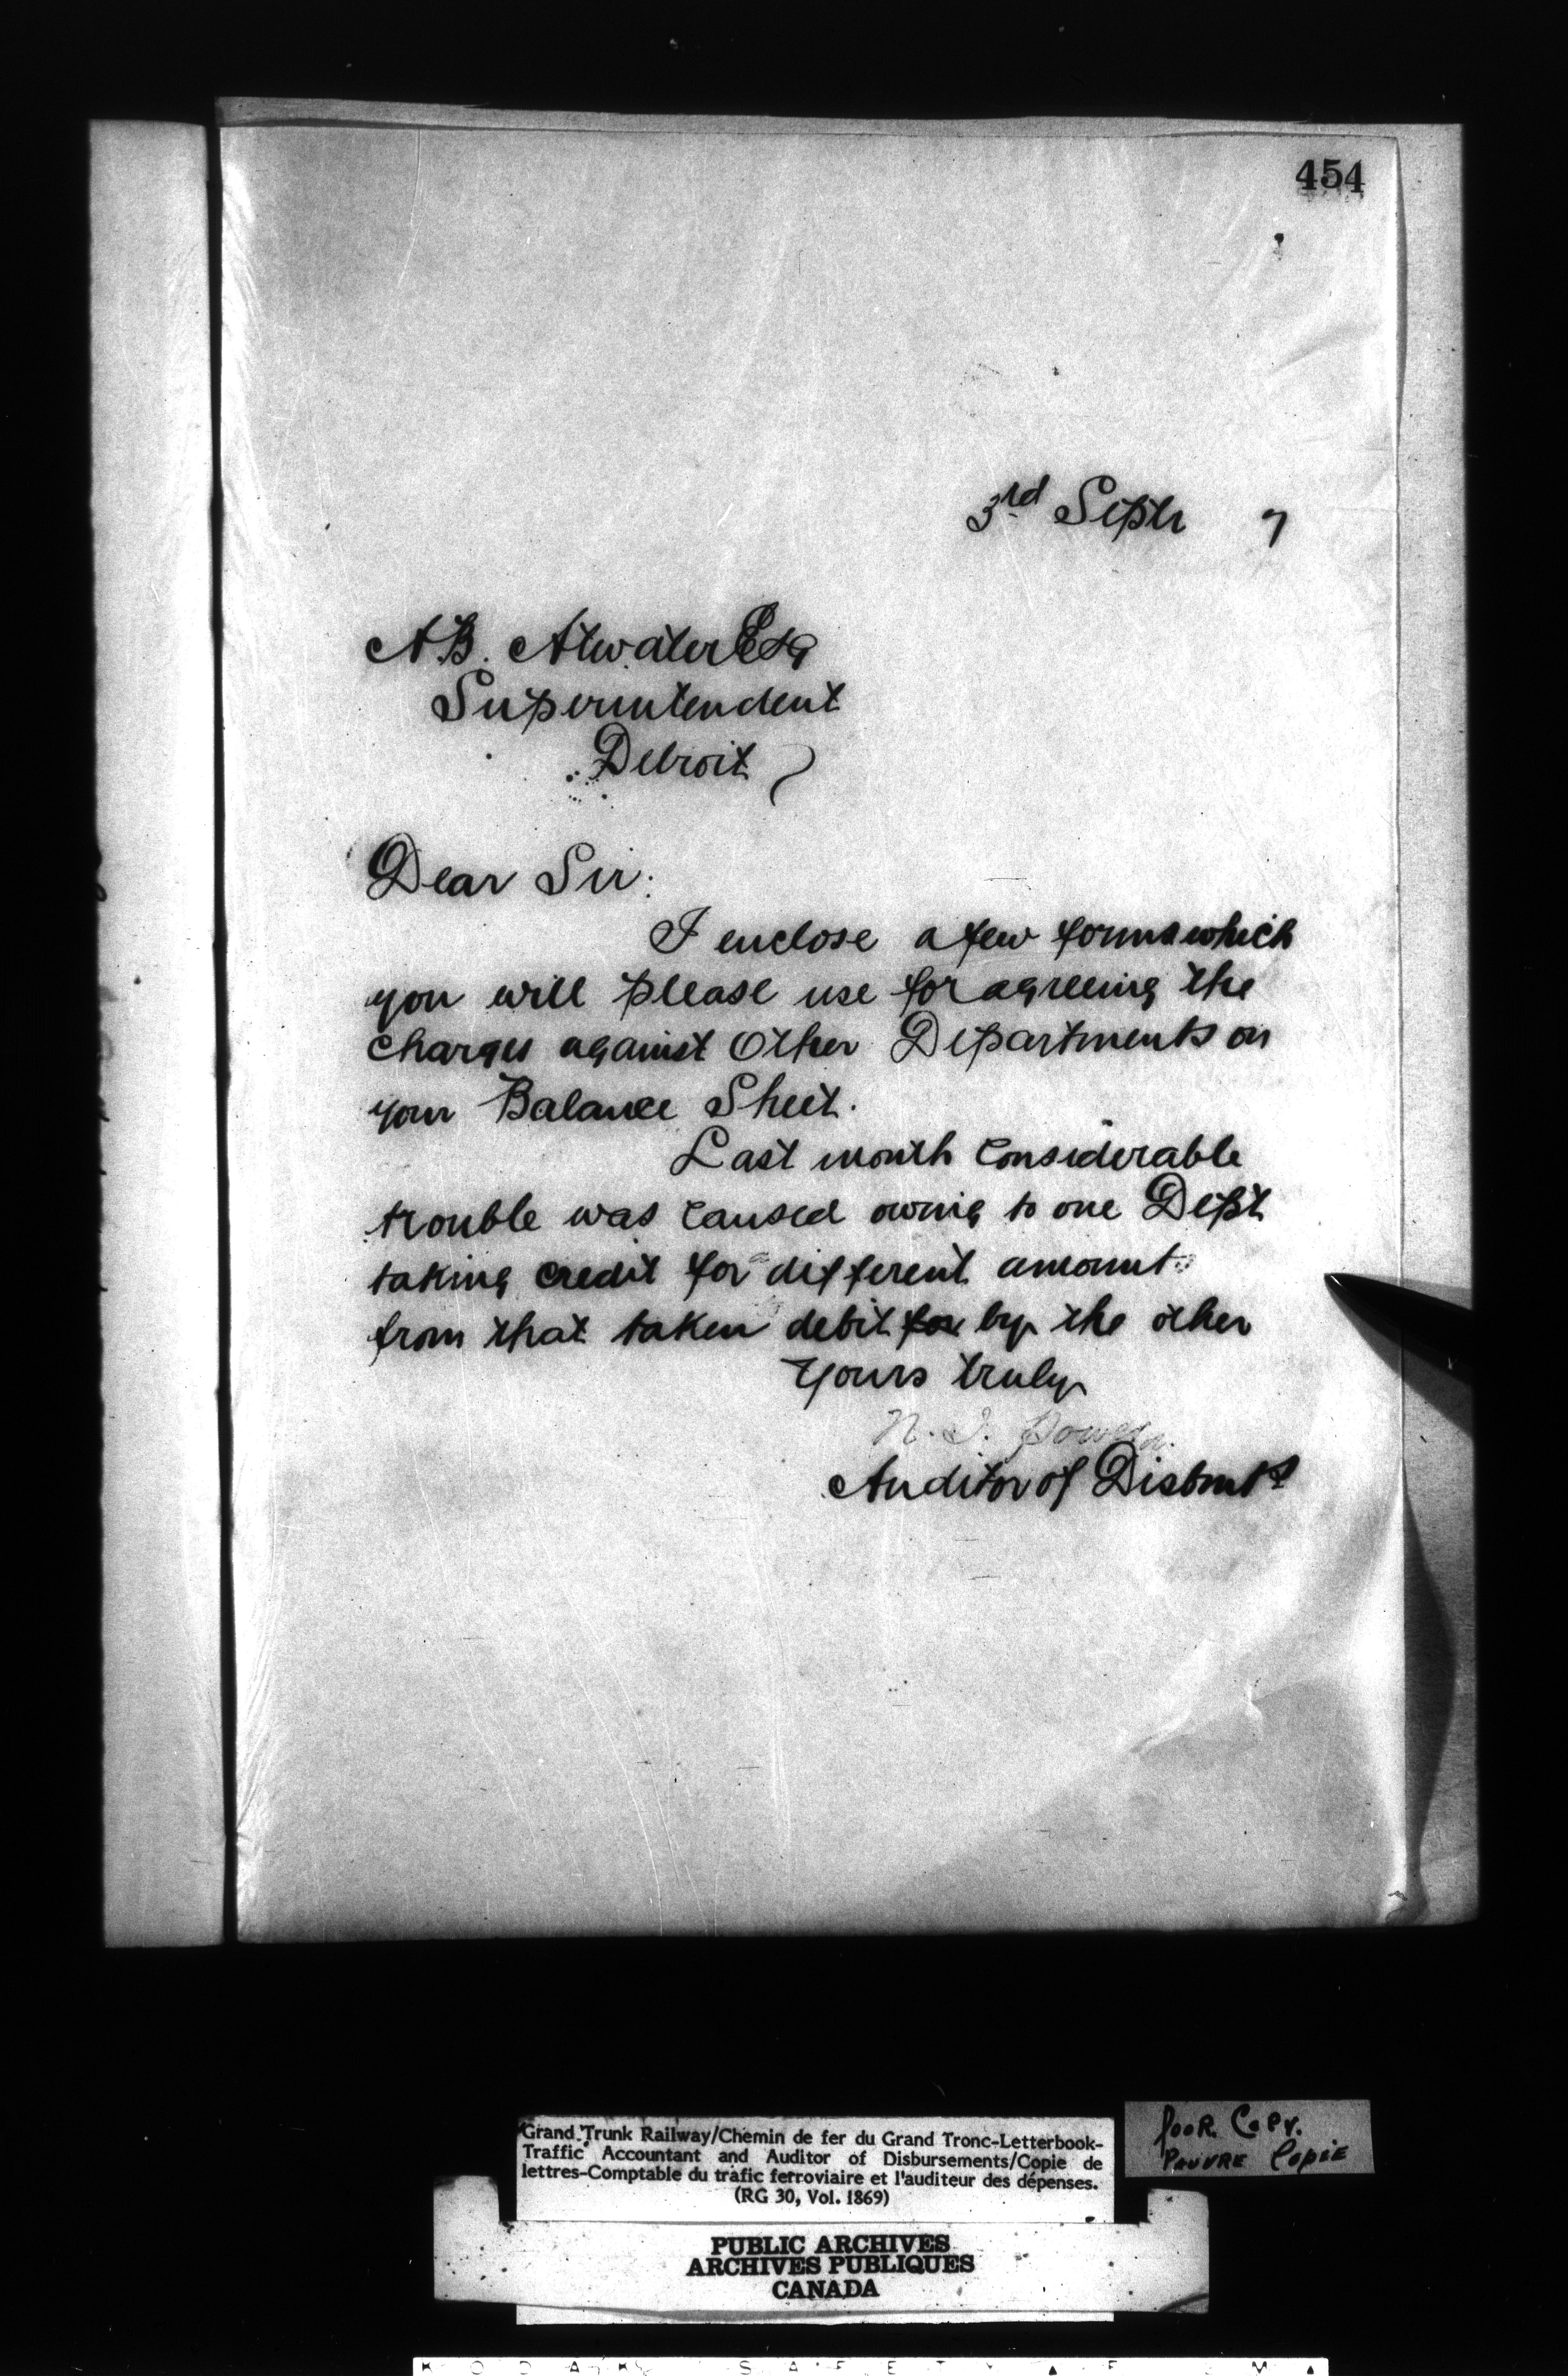 454
3rd Septr 7
A.B. Atwater Esq
Superintendent
Detroit
Dear Sir:
I enclose a few forms which
you will please use for agreeing the
charges against Other Departments on
your Balance Sheet.
Last month considerable
trouble was caused owing to one Dept
taking credit for different amount
from that taken debit for by the other
Yours truly
N. J. Power
Auditor of Disbmts
Grand Trunk Railway/Chemin de fer du Grand Tronc-Letterbook-
Traffic Accountant and Auditor of Disbursements/Copie de
lettres-Comptable du trafic ferroviaire et l'auditeur des dépenses.
(RG 30, Vol. 1869)
POOR COPY.
PAUVRE COPIE
PUBLIC ARCHIVES
ARCHIVES PUBLIQUES
CANADA
KODAK SAFETY